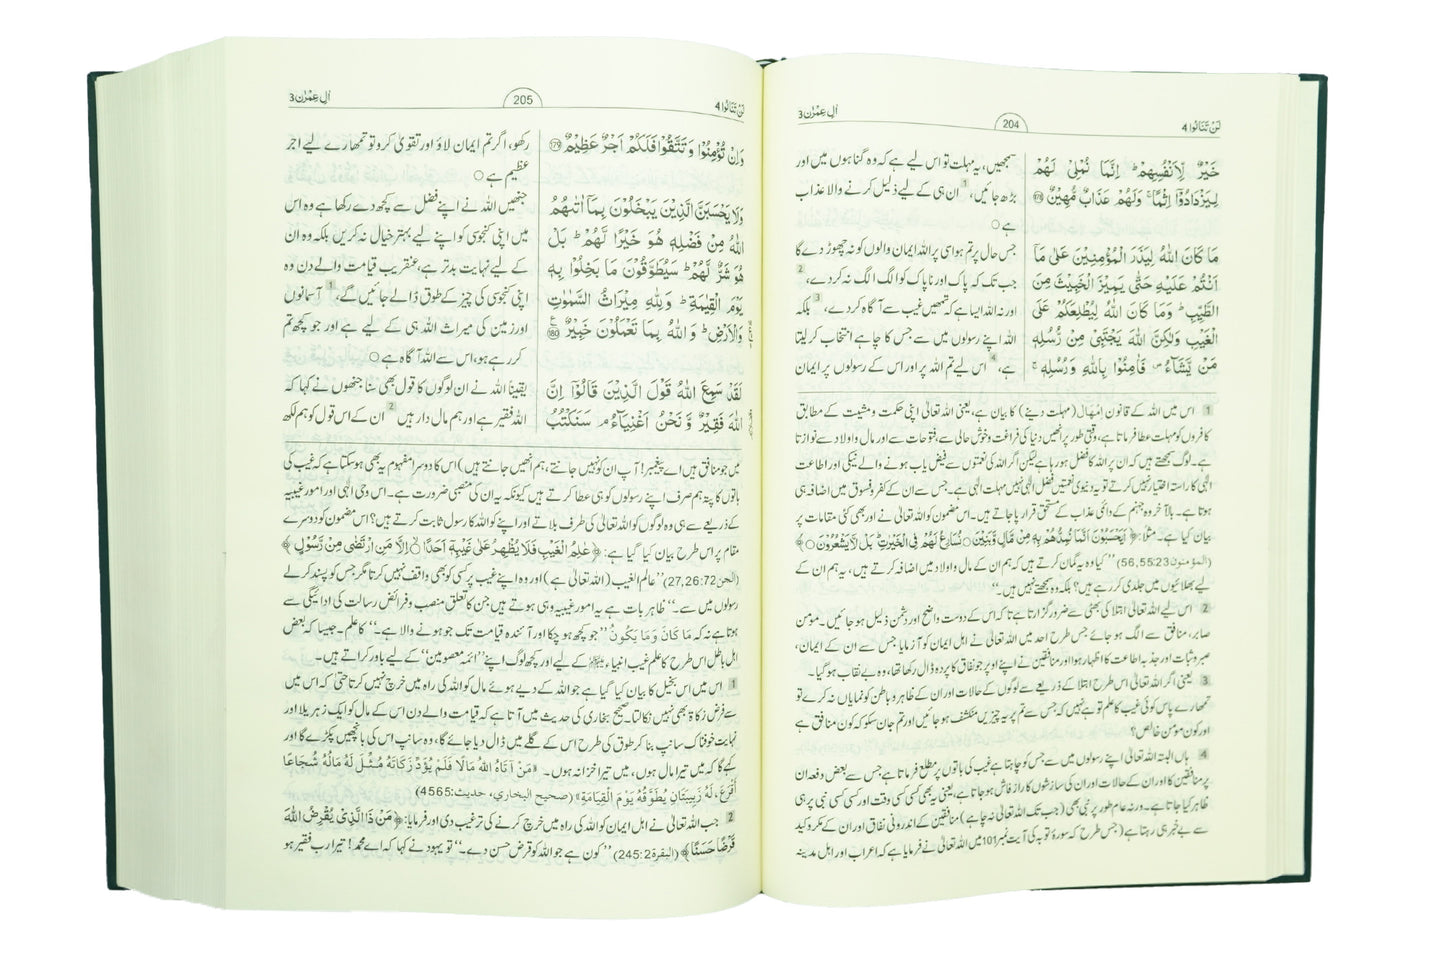 لَنْ تَنَالُوا 4
204
اٰلِ عِمْرٰن 3
خَيْرٌ لِّاَنْفُسِهِمْ ؕ اِنَّمَا نُمْلِيْ لَهُمْ
لِيَزْدَادُوْۤا اِثْمًا ۚ وَلَهُمْ عَذَابٌ مُّهِيْنٌ ﴿178﴾
مَا كَانَ اللّٰهُ لِيَذَرَ الْمُؤْمِنِيْنَ عَلٰى مَاۤ
اَنْتُمْ عَلَيْهِ حَتّٰى يَمِيْزَ الْخَبِيْثَ مِنَ
الطَّيِّبِ ؕ وَمَا كَانَ اللّٰهُ لِيُطْلِعَكُمْ عَلَى
الْغَيْبِ وَلٰكِنَّ اللّٰهَ يَجْتَبِيْ مِنْ رُّسُلِهٖ
مَنْ يَّشَآءُ ۪ فَاٰمِنُوْا بِاللّٰهِ وَرُسُلِهٖ ۚ
سمجھیں، یہ مہلت تو اس لیے ہے کہ وہ گناہوں میں اور
بڑھ جائیں، 1 ان ہی کے لیے ذلیل کرنے والا عذاب
ہے ○
جس حال پر تم ہو اسی پر اللہ ایمان والوں کو نہ چھوڑ دے گا
جب تک کہ پاک اور ناپاک کو الگ الگ نہ کر دے، 2
اور نہ اللہ ایسا ہے کہ تمھیں غیب سے آگاہ کر دے، 3 بلکہ
اللہ اپنے رسولوں میں سے جس کا چاہے انتخاب کر لیتا
ہے، 4 اس لیے تم اللہ پر اور اس کے رسولوں پر ایمان
1 اس میں اللہ کے قانون اِمْہَال (مہلت دینے) کا بیان ہے، یعنی اللہ تعالیٰ اپنی حکمت و مشیت کے مطابق
کافروں کو مہلت عطا فرماتا ہے، وقتی طور پر انھیں دنیا کی فراغت و خوش حالی سے، فتوحات سے اور مال و اولاد سے نوازتا
ہے۔ لوگ سمجھتے ہیں کہ ان پر اللہ کا فضل ہو رہا ہے لیکن اگر اللہ کی نعمتوں سے فیض یاب ہونے والے نیکی اور اطاعت
الٰہی کا راستہ اختیار نہیں کرتے تو یہ دنیوی نعمتیں فضل الٰہی نہیں مہلت الٰہی ہے۔ جس سے ان کے کفر و فسوق میں اضافہ ہی
ہوتا ہے۔ بالآخر وہ جہنم کے دائمی عذاب کے مستحق قرار پا جاتے ہیں۔ اس مضمون کو اللہ تعالیٰ نے اور بھی کئی مقامات پر
بیان کیا ہے۔ مثلاً: ﴿اَيَحْسَبُوْنَ اَنَّمَا نُمِدُّهُمْ بِهٖ مِنْ مَّالٍ وَّبَنِيْنَ ○ نُسَارِعُ لَهُمْ فِي الْخَيْرٰتِ ؕ بَلْ لَّا يَشْعُرُوْنَ ○﴾
(المؤمنون 56,55:23) ”کیا وہ یہ گمان کرتے ہیں کہ ہم ان کے مال و اولاد میں اضافہ کرتے ہیں، یہ ہم ان کے
لیے بھلائیوں میں جلدی کر رہے ہیں؟ بلکہ وہ سمجھتے نہیں ہیں۔“
2 اس لیے اللہ تعالیٰ ابتلا کی بھٹی سے ضرور گزارتا ہے تاکہ اس کے دوست واضح اور دشمن ذلیل ہو جائیں۔ مومن
صابر، منافق سے الگ ہو جائے جس طرح احد میں اللہ تعالیٰ نے اہل ایمان کو آزمایا جس سے ان کے ایمان،
صبر و ثبات اور جذبہ اطاعت کا اظہار ہوا اور منافقین نے اپنے اوپر جو نفاق کا پردہ ڈال رکھا تھا، وہ بے نقاب ہو گیا۔
3 یعنی اگر اللہ تعالیٰ اس طرح ابتلا کے ذریعے سے لوگوں کے حالات اور ان کے ظاہر و باطن کو نمایاں نہ کرے تو
تمھارے پاس کوئی غیب کا علم تو ہے نہیں کہ جس سے تم پر یہ چیزیں منکشف ہو جائیں اور تم جان سکو کہ کون منافق ہے
اور کون مومن خالص؟
4 ہاں البتہ اللہ تعالیٰ اپنے رسولوں میں سے جس کو چاہتا ہے غیب کی باتوں پر مطلع فرماتا ہے جس سے بعض دفعہ ان
پر منافقین کا اور ان کے حالات اور ان کی سازشوں کا راز فاش ہو جاتا ہے، یعنی یہ بھی کسی کسی وقت اور کسی کسی نبی پر ہی
ظاہر کیا جاتا ہے۔ ورنہ عام طور پر نبی بھی (جب تک اللہ تعالیٰ نہ چاہے) منافقین کے اندرونی نفاق اور ان کے مکر و کید
سے بے خبر ہی رہتا ہے (جس طرح کہ سورۂ توبہ کی آیت نمبر 101 میں اللہ تعالیٰ نے فرمایا ہے کہ اعراب اور اہل مدینہ
لَنْ تَنَالُوا 4
205
اٰلِ عِمْرٰن 3
وَاِنْ تُؤْمِنُوْا وَتَتَّقُوْا فَلَكُمْ اَجْرٌ عَظِيْمٌ ﴿179﴾
وَلَا يَحْسَبَنَّ الَّذِيْنَ يَبْخَلُوْنَ بِمَاۤ اٰتٰىهُمُ
اللّٰهُ مِنْ فَضْلِهٖ هُوَ خَيْرًا لَّهُمْ ؕ بَلْ
هُوَ شَرٌّ لَّهُمْ ؕ سَيُطَوَّقُوْنَ مَا بَخِلُوْا بِهٖ
يَوْمَ الْقِيٰمَةِ ؕ وَلِلّٰهِ مِيْرَاثُ السَّمٰوٰتِ
وَالْاَرْضِ ؕ وَاللّٰهُ بِمَا تَعْمَلُوْنَ خَبِيْرٌ ﴿180﴾
لَقَدْ سَمِعَ اللّٰهُ قَوْلَ الَّذِيْنَ قَالُوْۤا اِنَّ
اللّٰهَ فَقِيْرٌ وَّنَحْنُ اَغْنِيَآءُ ۘ سَنَكْتُبُ
رکھو، اگر تم ایمان لاؤ اور تقویٰ کرو تو تمھارے لیے اجر
عظیم ہے ○
جنھیں اللہ نے اپنے فضل سے کچھ دے رکھا ہے وہ اس
میں اپنی کنجوسی کو اپنے لیے بہتر خیال نہ کریں بلکہ وہ ان
کے لیے نہایت بدتر ہے، عنقریب قیامت والے دن وہ
اپنی کنجوسی کی چیز کے طوق ڈالے جائیں گے، 1 آسمانوں
اور زمین کی میراث اللہ ہی کے لیے ہے اور جو کچھ تم
کر رہے ہو، اس سے اللہ آگاہ ہے ○
یقیناً اللہ نے ان لوگوں کا قول بھی سنا جنھوں نے کہا کہ
اللہ فقیر ہے اور ہم مال دار ہیں 2 ان کے اس قول کو ہم لکھ
میں جو منافق ہیں اے پیغمبر! آپ ان کو نہیں جانتے، ہم انھیں جانتے ہیں) اس کا دوسرا مفہوم یہ بھی ہو سکتا ہے کہ غیب کی
باتوں کا پتہ ہم صرف اپنے رسولوں کو ہی عطا کرتے ہیں کیونکہ یہ ان کی منصبی ضرورت ہے۔ اس وحی الٰہی اور امور غیبیہ
کے ذریعے سے ہی وہ لوگوں کو اللہ تعالیٰ کی طرف بلاتے اور اپنے کو اللہ کا رسول ثابت کرتے ہیں؟ اس مضمون کو دوسرے
مقام پر اس طرح بیان کیا گیا ہے: ﴿عٰلِمُ الْغَيْبِ فَلَا يُظْهِرُ عَلٰى غَيْبِهٖۤ اَحَدًا ○ اِلَّا مَنِ ارْتَضٰى مِنْ رَّسُوْلٍ﴾
(الجن 27,26:72) ”عالم الغیب (اللہ تعالیٰ ہے) اور وہ اپنے غیب پر کسی کو بھی واقف نہیں کرتا مگر جس کو پسند کر لے
رسولوں میں سے۔“ ظاہر بات ہے یہ امور غیبیہ وہی ہوتے ہیں جن کا تعلق منصب و فرائض رسالت کی ادائیگی سے
ہوتا ہے نہ کہ مَا كَانَ وَمَا يَكُونُ ”جو کچھ ہو چکا اور آئندہ قیامت تک جو ہونے والا ہے۔“ کا علم۔ جیسا کہ بعض
اہل باطل اس طرح کا علم غیب انبیاء ﷩ کے لیے اور کچھ لوگ اپنے ”ائمہ معصومین“ کے لیے باور کراتے ہیں۔
1 اس میں اس بخیل کا بیان کیا گیا ہے جو اللہ کے دیے ہوئے مال کو اللہ کی راہ میں خرچ نہیں کرتا حتیٰ کہ اس میں
سے فرض زکاۃ بھی نہیں نکالتا۔ صحیح بخاری کی حدیث میں آتا ہے کہ قیامت والے دن اس کے مال کو ایک زہریلا اور
نہایت خوفناک سانپ بنا کر طوق کی طرح اس کے گلے میں ڈال دیا جائے گا، وہ سانپ اس کی بانچھیں پکڑے گا اور
کہے گا کہ میں تیرا مال ہوں، میں تیرا خزانہ ہوں۔ «مَنْ آتَاهُ اللّٰهُ مَالًا فَلَمْ يُؤَدِّ زَكَاتَهُ مُثِّلَ لَهُ مَالُهُ شُجَاعًا
أَقْرَعَ، لَهُ زَبِيبَتَانِ يُطَوَّقُهُ يَوْمَ الْقِيَامَةِ» (صحيح البخاري، حديث: 4565)
2 جب اللہ تعالیٰ نے اہل ایمان کو اللہ کی راہ میں خرچ کرنے کی ترغیب دی اور فرمایا: ﴿مَنْ ذَا الَّذِيْ يُقْرِضُ اللّٰهَ
قَرْضًا حَسَنًا﴾ (البقرۃ 245:2) ”کون ہے جو اللہ کو قرض حسن دے۔“ تو یہود نے کہا کہ اے محمد! تیرا رب فقیر ہو